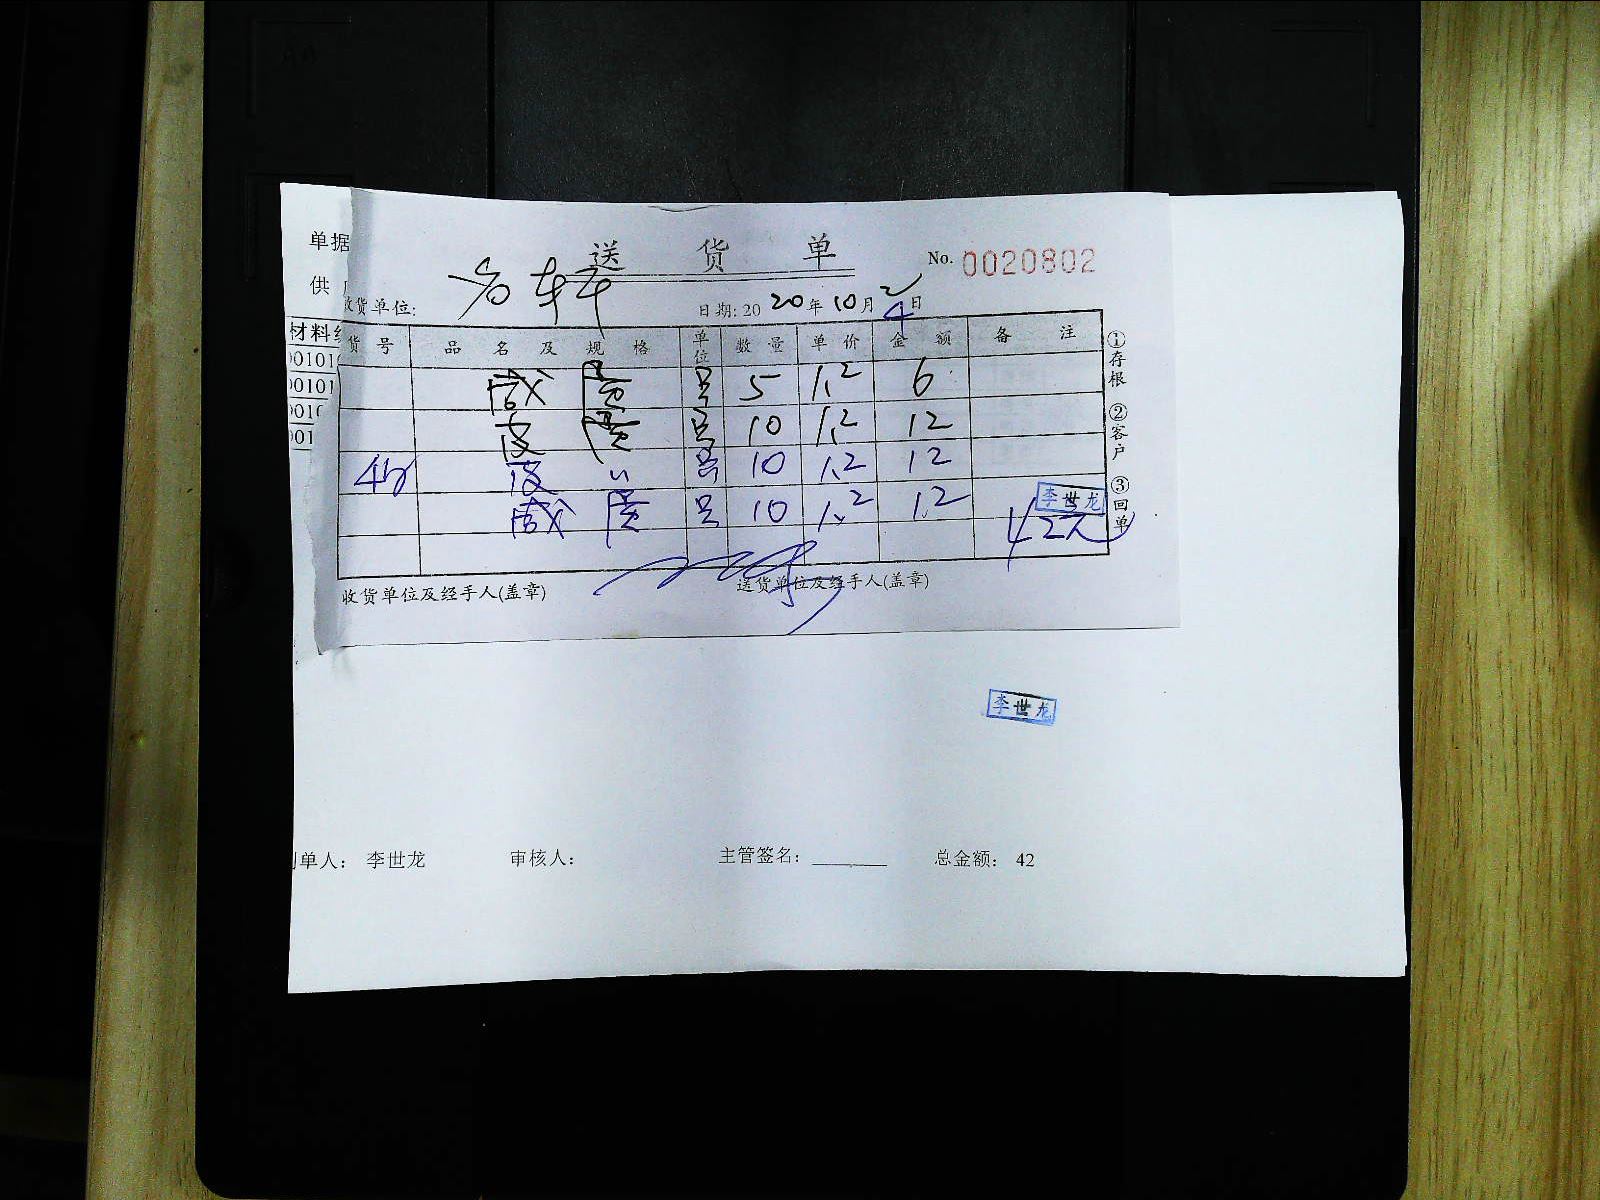 单据
供
送 货 单
No. 0020802
收货单位:
日期: 20 20 年 10 月 2 4 日
材料
货 号 品 名 及 规 格 单位 数 量 单 价 金 额 备 注
00101
00101
0010
001
咸 蛋 5 1.2 6
皮 蛋 10 1.2 12
4日 皮 〃 10 1.2 12
咸 蛋 10 1.2 1.2
李世龙
42元
①存根 ②客户 ③回单
收货单位及经手人(盖章) 送货单位及经手人(盖章)
李世龙
制单人: 李世龙 审核人: 主管签名: 总金额: 42